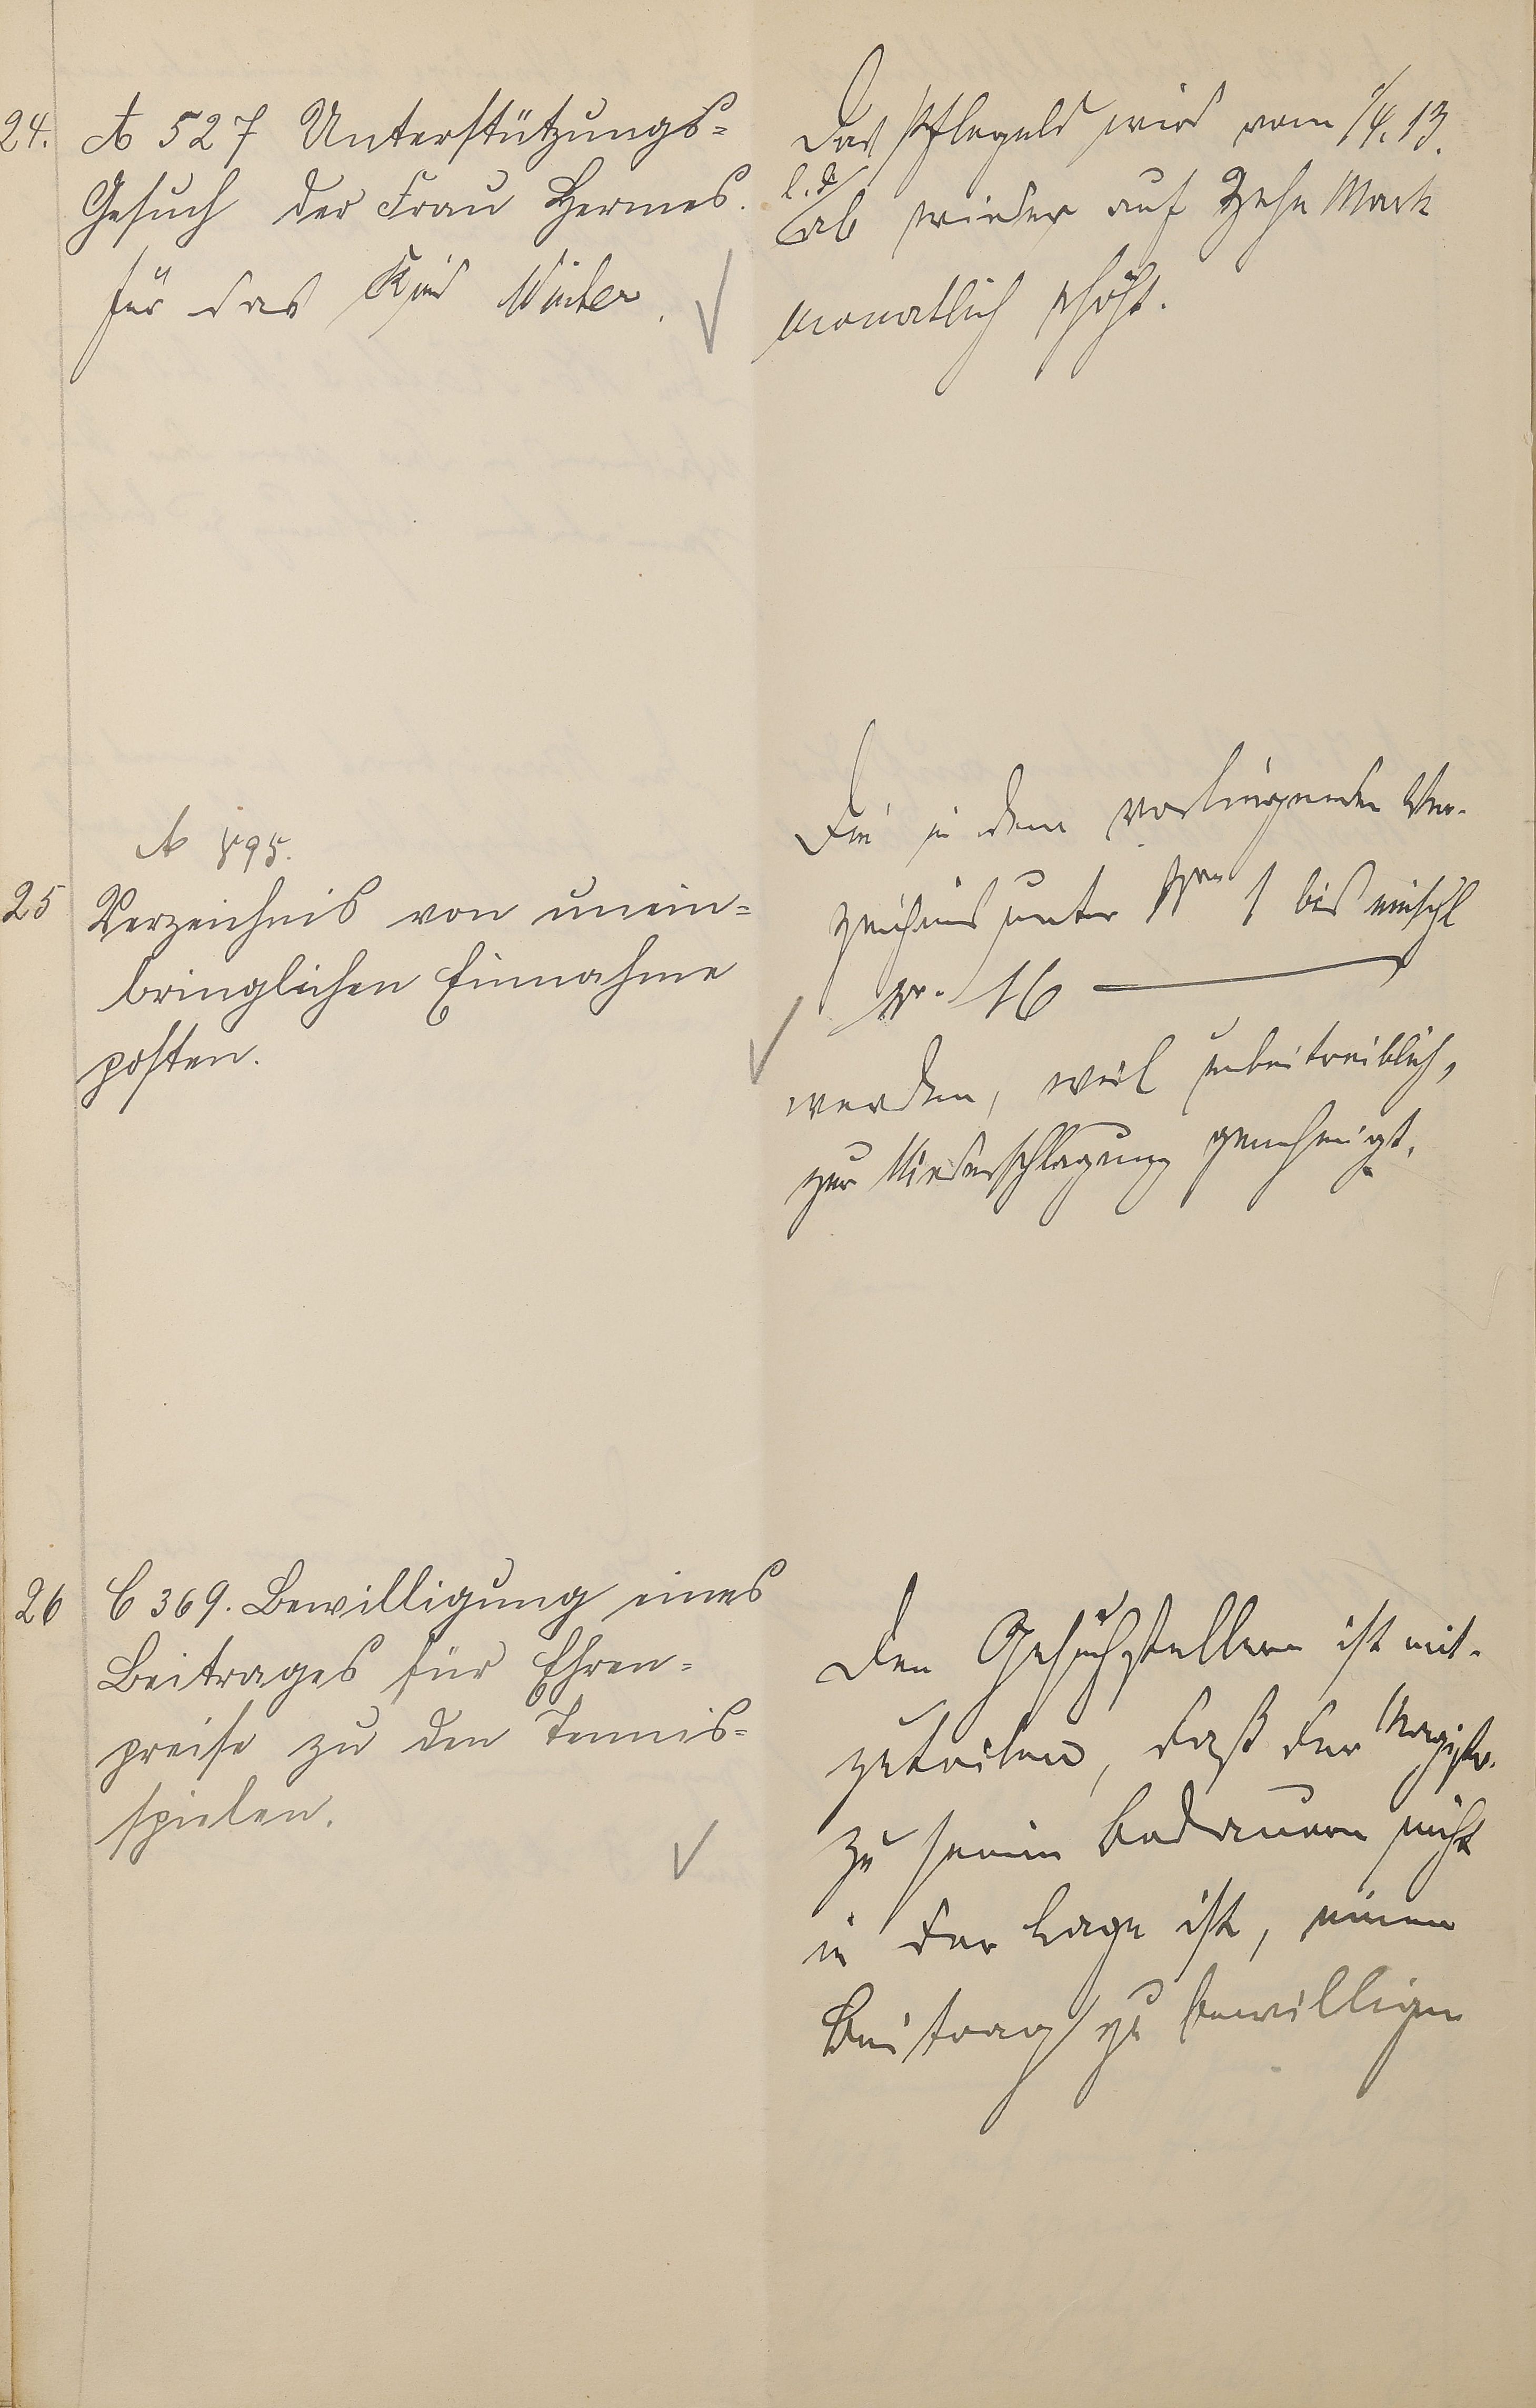 24. A 527 Unterstützungs=
Gesuch der Frau Hermes.
für das Kind Winter.
Das Pflegeld wird vom 1/4. 13.
l. d.
ab wieder auf Zehn Mark
monatlich erhöht.
A 595.
25 Verzeichnis von unein=
bringlichen Einnahme
posten.
Die in dem vorliegenden Ver-
zeichnis unter Nrn 1 bis einschl
Nr. 16
werden, weil unbeitreiblich,
zur Niederschlagung genehmigt.
26 C 369. Bewilligung eines
Beitrages für Ehren=
preise zu den Tennis=
spielen.
Den Gesuchstellern ist mit-
zuteilen, daß der Magistr.
zu seinem Bedauern nicht
in der Lage ist, einen
Beitrag zu bewilligen